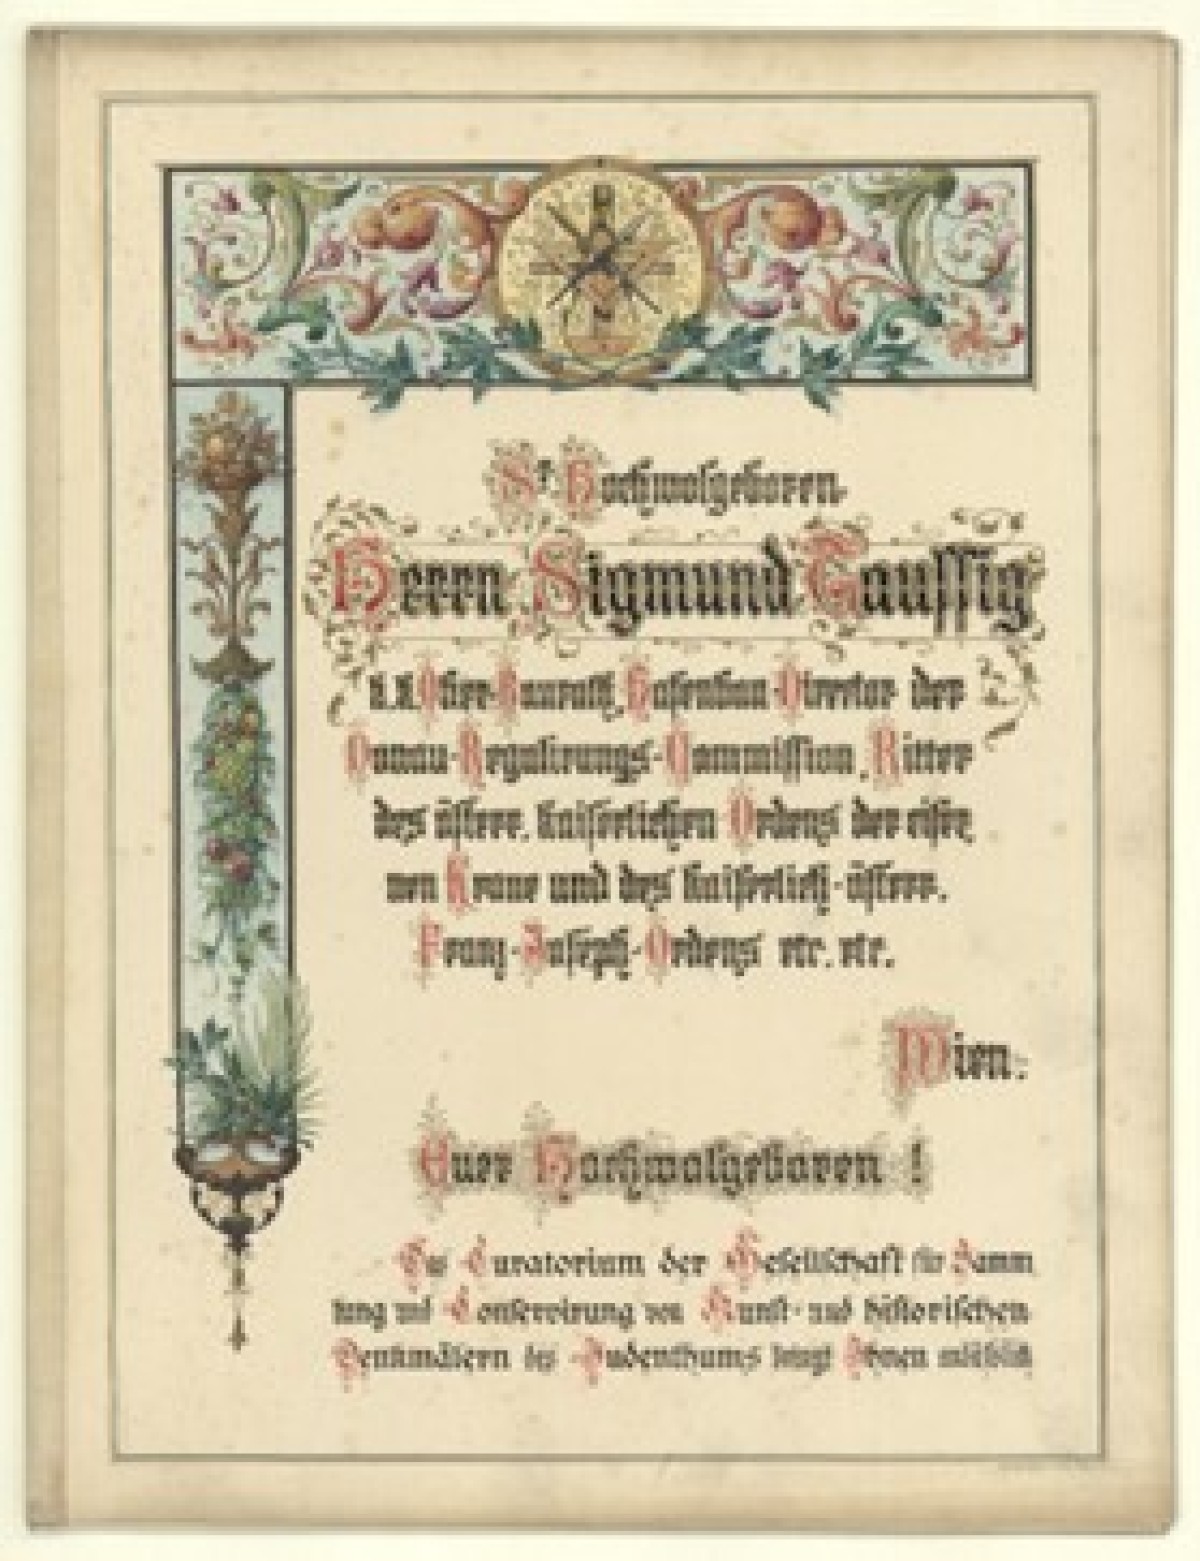 Sr. Hochwolgeboren
Herrn Sigmund Taussig
k. k. Ober-Baurath, Hafenbau-Director der
Donau-Regulirungs-Commission, Ritter
des österr. kaiserlichen Ordens der eiser
nen Krone und des kaiserlich-österr.
Franz-Joseph-Ordens etc. etc.
Wien.
Euer Hochwolgeboren!
Das Curatorium der Gesellschaft für Samm
lung und Conservirung von Kunst- und historischen
Denkmälern des Judenthums bringt Ihnen anläßlich